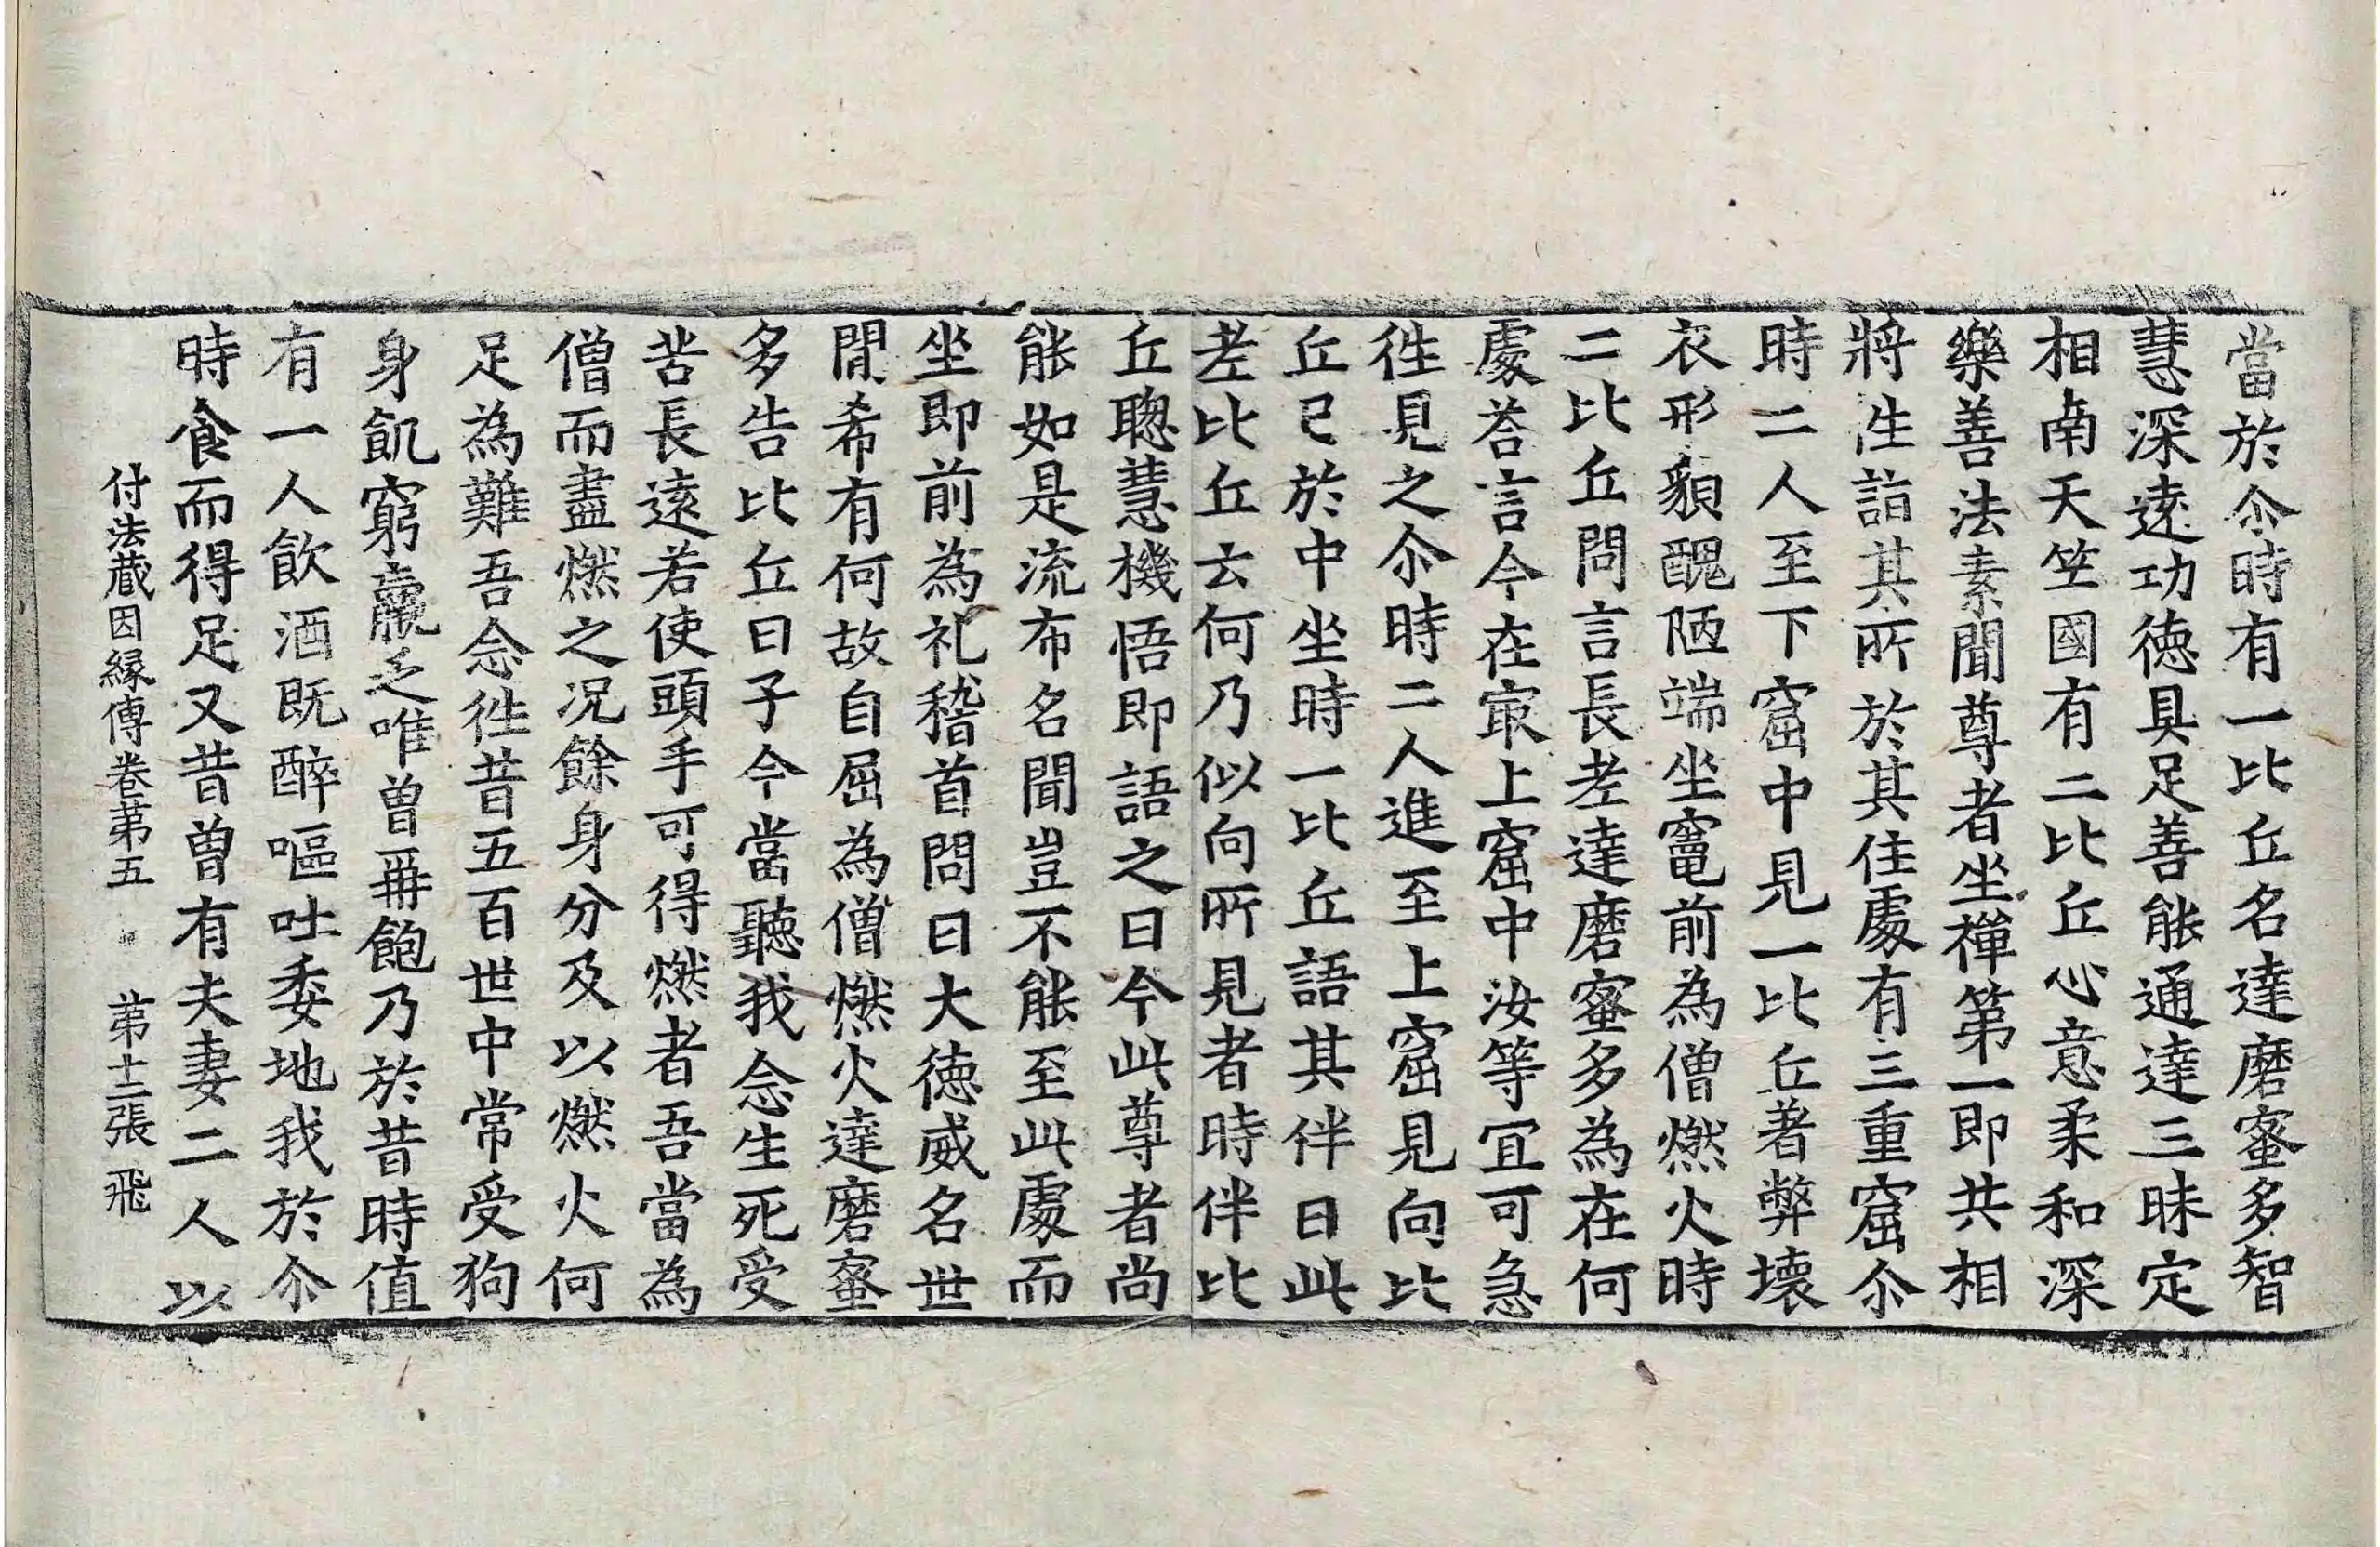 當於尒時有一比丘名達磨蜜多智
慧深遠功德具足善能通達三昧定
相南天竺國有二比丘心意柔和深
樂善法素聞尊者坐禪第一即共相
將往詣其所於其住處有三重窟尒
時二人至下窟中見一比丘著弊壞
衣形貌醜陋端坐竈前為僧燃火時
二比丘問言長老達磨蜜多為在何
處荅言今在㝡上窟中汝等冝可急
徃見之尒時二人進至上窟見向比
丘已於中坐時一比丘語其伴曰此
老比丘云何乃似向所見者時伴比
丘聦慧機悟即語之曰今此尊者尚
能如是流布名聞豈不能至此處而
坐即前為礼稽首問曰大德威名世
間希有何故自屈為僧燃火達磨蜜
多告比丘曰子今當聽我念生死受
苦長遠若使頭手可得燃者吾當為
僧而盡燃之况餘身分及以燃火何
足為難吾念徃昔五百世中常受狗
身飢窮羸乏唯曽再飽乃於昔時值
有一人飲酒既醉嘔吐委地我於尒
時食而得足又昔曽有夫妻二人以
付法藏因緣傳卷苐五　苐十二張　飛